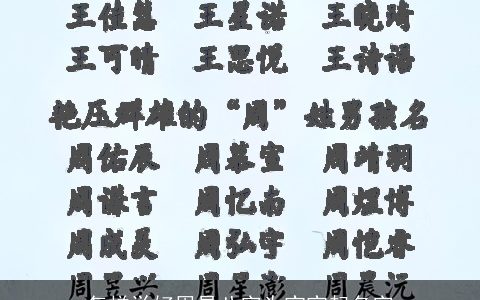 王佳慧 王星诺 王晓琦
王可晴 王思悦 王诗语
艳压群雄的“周”姓男孩名
周佑辰 周慕宣 周靖羽
周谦言 周忆南 周煜博
周成昊 周弘宇 周恺睿
周景兴 周星澎 周晨沅